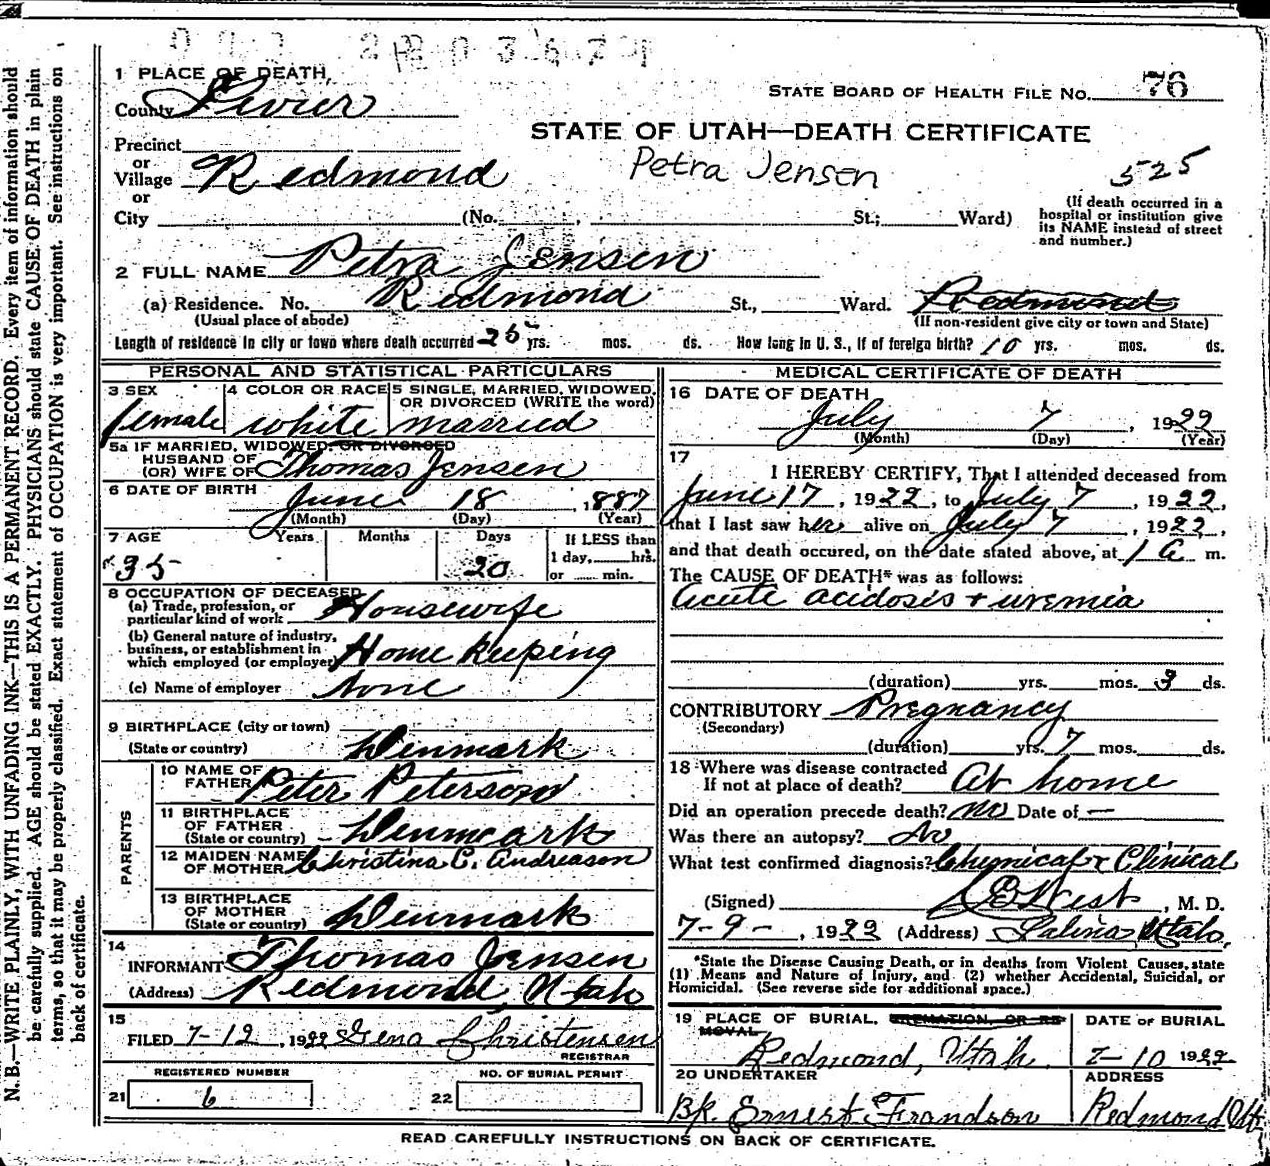 1 PLACE OF DEATH
County Sevier
STATE BOARD OF HEALTH FILE NO. 76
STATE OF UTAH—DEATH CERTIFICATE
Petra Jensen
525
Precinct
or
Village Redmond
or
City (No. , St.; Ward)
(If death occurred in a
hospital or institution give
its NAME instead of street
and number.)
2 FULL NAME Petra Jensen
(a) Residence. No. Redmond St., Ward. Redmond
(Usual place of abode) (If non-resident give city or town and State)
Length of residence in city or town where death occurred 25 yrs. mos. ds. How long in U. S., if of foreign birth? 10 yrs. mos. ds.
PERSONAL AND STATISTICAL PARTICULARS
3 SEX 4 COLOR OR RACE 5 SINGLE, MARRIED, WIDOWED,
OR DIVORCED (WRITE the word)
female white married
5a IF MARRIED, WIDOWED, OR DIVORCED
HUSBAND OF
(OR) WIFE OF Thomas Jensen
6 DATE OF BIRTH June 18, 1887
(Month) (Day) (Year)
7 AGE Years Months Days If LESS than
1 day, hrs.
or min.
35 20
8 OCCUPATION OF DECEASED
(a) Trade, profession, or
particular kind of work Housewife
(b) General nature of industry,
business, or establishment in
which employed (or employer) Home keeping
(c) Name of employer None
9 BIRTHPLACE (city or town)
(State or country) Denmark
PARENTS
10 NAME OF
FATHER Peter Peterson
11 BIRTHPLACE
OF FATHER
(State or country) Denmark
12 MAIDEN NAME
OF MOTHER Christina C. Andreason
13 BIRTHPLACE
OF MOTHER
(State or country) Denmark
14
INFORMANT Thomas Jensen
(Address) Redmond, Utah
15
FILED 7-12, 1922 Gena Christensen
REGISTRAR
REGISTERED NUMBER NO. OF BURIAL PERMIT
21 6 22
MEDICAL CERTIFICATE OF DEATH
16 DATE OF DEATH
July 7, 1922
(Month) (Day) (Year)
17
I HEREBY CERTIFY, That I attended deceased from
June 17, 1922, to July 7, 1922,
that I last saw her alive on July 7, 1922,
and that death occured, on the date stated above, at 1 a m.
The CAUSE OF DEATH* was as follows:
Acute acidosis + uremia
(duration) yrs. mos. 3 ds.
CONTRIBUTORY Pregnancy
(Secondary)
(duration) yrs. 7 mos. ds.
18 Where was disease contracted
If not at place of death? At home
Did an operation precede death? no Date of —
Was there an autopsy? No
What test confirmed diagnosis? Chemical & Clinical
(Signed) West, M. D.
7-9-, 1922 (Address) Salina, Utah,
*State the Disease Causing Death, or in deaths from Violent Causes, state
(1) Means and Nature of Injury, and (2) whether Accidental, Suicidal, or
Homicidal. (See reverse side for additional space.)
19 PLACE OF BURIAL, CREMATION, OR RE-
MOVAL DATE OF BURIAL
Redmond, Utah 7-10 1922
20 UNDERTAKER ADDRESS
Ernest Frandson Redmond Ut.
READ CAREFULLY INSTRUCTIONS ON BACK OF CERTIFICATE.
N. B.—WRITE PLAINLY, WITH UNFADING INK—THIS IS A PERMANENT RECORD. Every item of information should
be carefully supplied. AGE should be stated EXACTLY. PHYSICIANS should state CAUSE OF DEATH in plain
terms, so that it may be properly classified. Exact statement of OCCUPATION is very important. See instructions on
back of certificate.